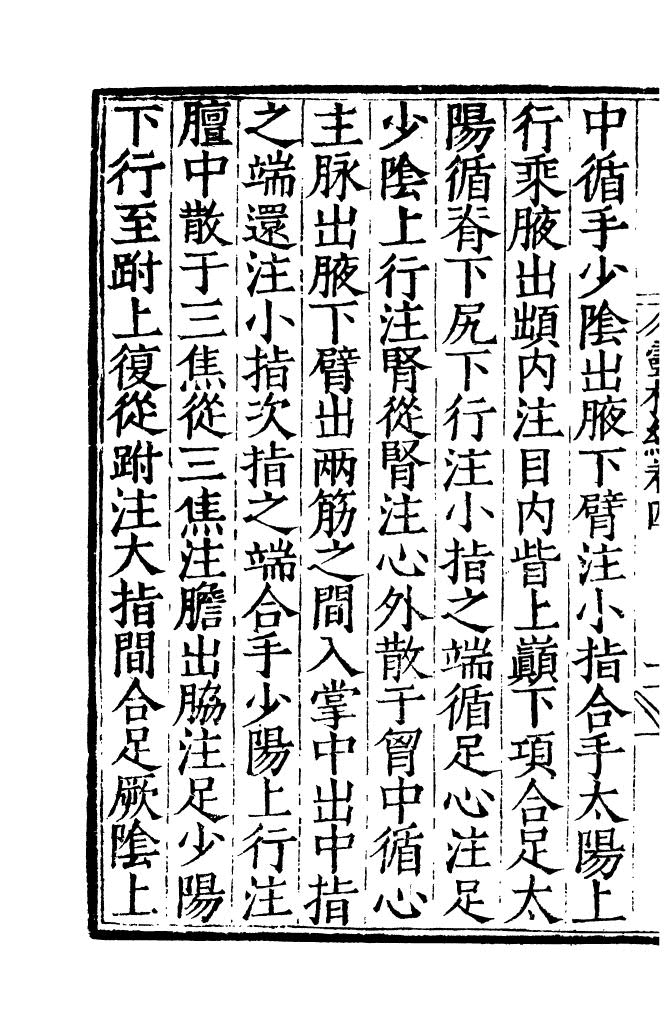 中循手少陰出腋下臂注小指合手太陽上
行乘腋出䪼内注目内眥上巔下項合足太
陽循脊下尻下行注小指之端循足心注足
少陰上行注腎從腎注心外散于胷中循心
主脉出腋下臂出兩筋之間入掌中出中指
之端還注小指次指之端合手少陽上行注
膻中散于三焦從三焦注膽出脇注足少陽
下行至跗上復從跗注大指間合足厥陰上